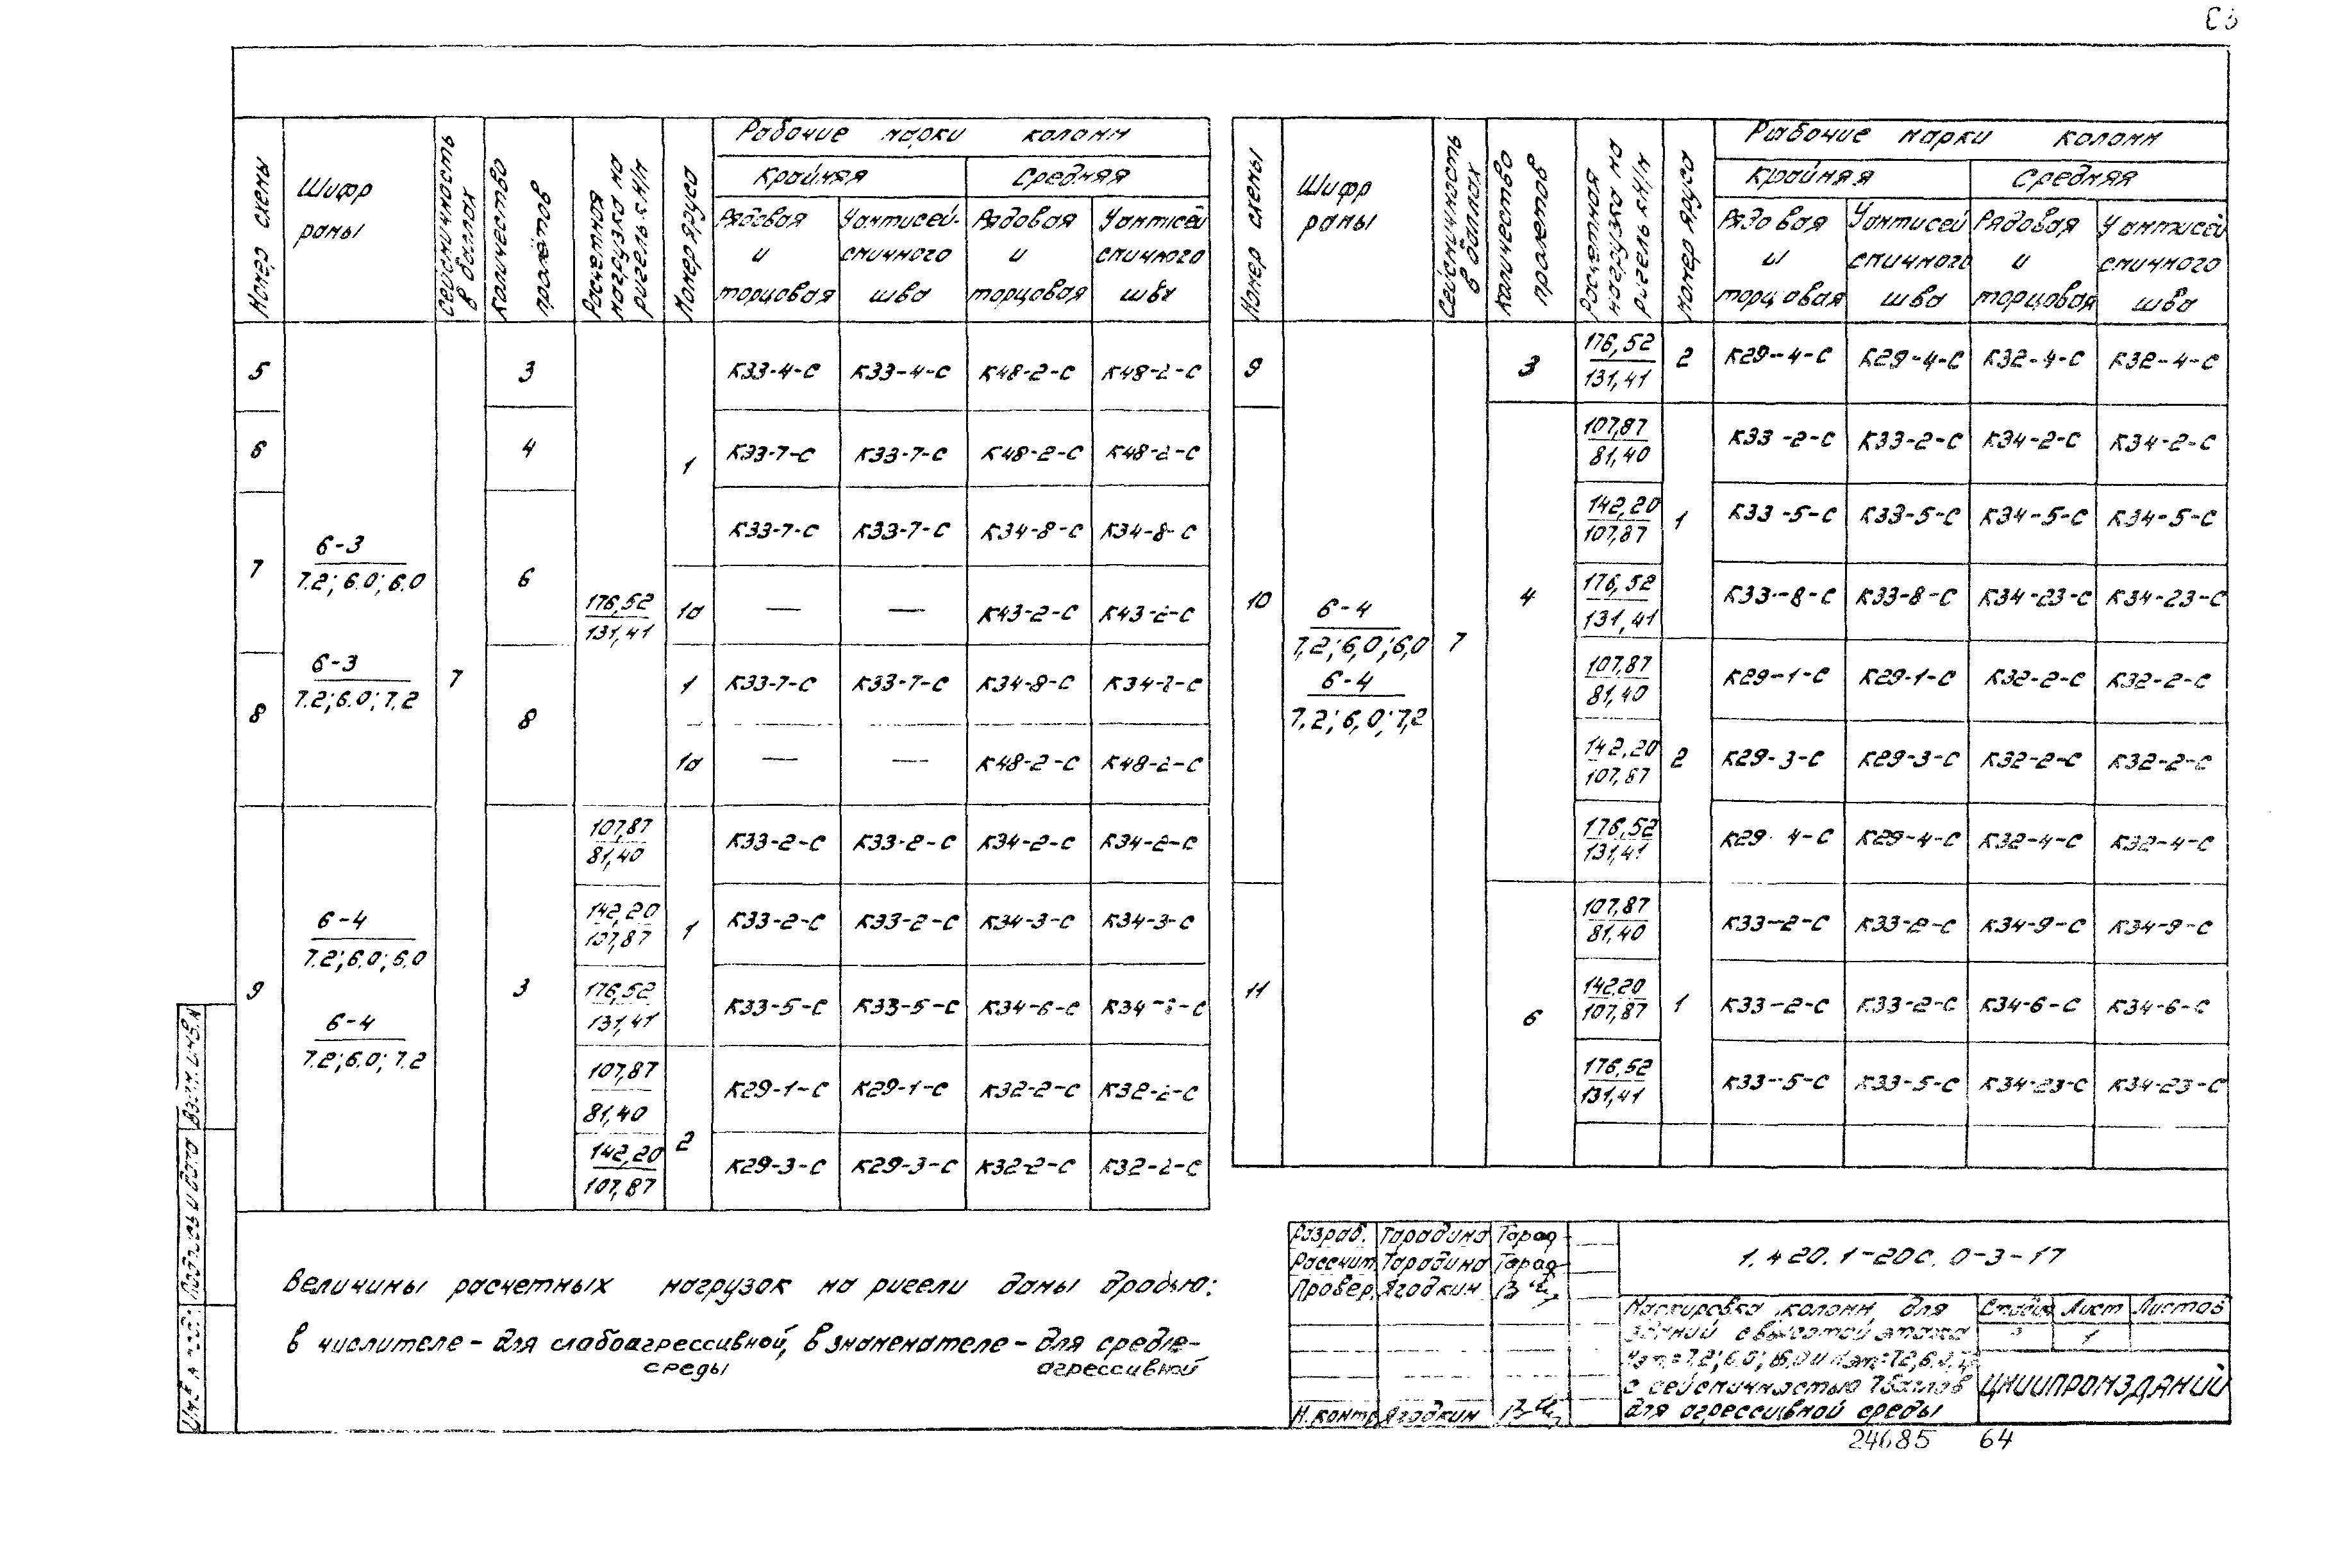 Номер схемы
Шифр рамы
Сейсмичность в баллах
Количество пролётов
Расчетная нагрузка на ригель кН/м
Номер яруса
Рабочие марки колонн
Крайняя Средняя
Рядовая и торцовая
У антисейсмичного шва
Рядовая и торцовая
У антисейсмичного шва
5 3 К33-4-С К33-4-С К48-2-С К48-2-С
6 4 1 К33-7-С К33-7-С К48-2-С К48-2-С
7 6-3 6 К33-7-С К33-7-С К34-8-С К34-8-С
7.2; 6.0; 6.0
176,52 1а — — К43-2-С К43-2-С
131,41
8 6-3 7 8 1 К33-7-С К33-7-С К34-8-С
7.2; 6.0; 7.2
1а — — К48-2-С К48-2-С
107,87 К33-2-С К33-2-С К34-2-С К34-2-С
81,40
9 6-4 3 142,20 1 К33-2-С К33-2-С К34-3-С К34-3-С
7.2; 6.0; 6.0 107,87
176,52 К33-5-С К33-5-С К34-6-С
131,41
6-4 107,87 К29-1-С К29-1-С К32-2-С К32-2-С
7.2; 6.0; 7.2 81,40
142,20 2 К29-3-С К29-3-С К32-2-С К32-2-С
107,87
Номер схемы
Шифр рамы
Сейсмичность в баллах
Количество пролетов
Расчетная нагрузка на ригель кН/м
Номер яруса
Рабочие марки колонн
Крайняя Средняя
Рядовая и торцовая
У антисейсмичного шва
Рядовая и торцовая
У антисейсмичного шва
9 3 176,52 2 К29-4-С К29-4-С К32-4-С К32-4-С
131,41
107,87 К33-2-С К33-2-С К34-2-С К34-2-С
81,40
142,20 1 К33-5-С К33-5-С К34-5-С К34-5-С
107,87
10 6-4 4 176,52 К33-8-С К33-8-С К34-23-С К34-23-С
7,2; 6,0; 6,0 7 131,41
6-4 107,87 К29-1-С К29-1-С К32-2-С К32-2-С
7,2; 6,0; 7,2 81,40
142,20 2 К29-3-С К29-3-С К32-2-С К32-2-С
107,87
176,52 К29-4-С К29-4-С К32-4-С К32-4-С
131,41
107,87 К33-2-С К33-2-С К34-9-С К34-9-С
81,40
11 6 142,20 1 К33-2-С К33-2-С К34-6-С К34-6-С
107,87
176,52 К33-5-С К33-5-С К34-23-С К34-23-С
131,41
Величины расчетных нагрузок на ригели даны дробью:
в числителе – для слабоагрессивной, в знаменателе – для средне-
среды агрессивной
Разраб. Тарадина Тарад
Рассчит. Тарадина Тарад
Провер. Ягодкин
Н.контр. Ягодкин
1.420.1-20С.0-3-17
Маркировка колонн для
зданий с высотой этажа
с сейсмичностью 7 баллов
для агрессивной среды
Стадия Лист Листов
Р 1
ЦНИИПРОМЗДАНИЙ
Подпись и дата
Взам. инв. №
24685 64